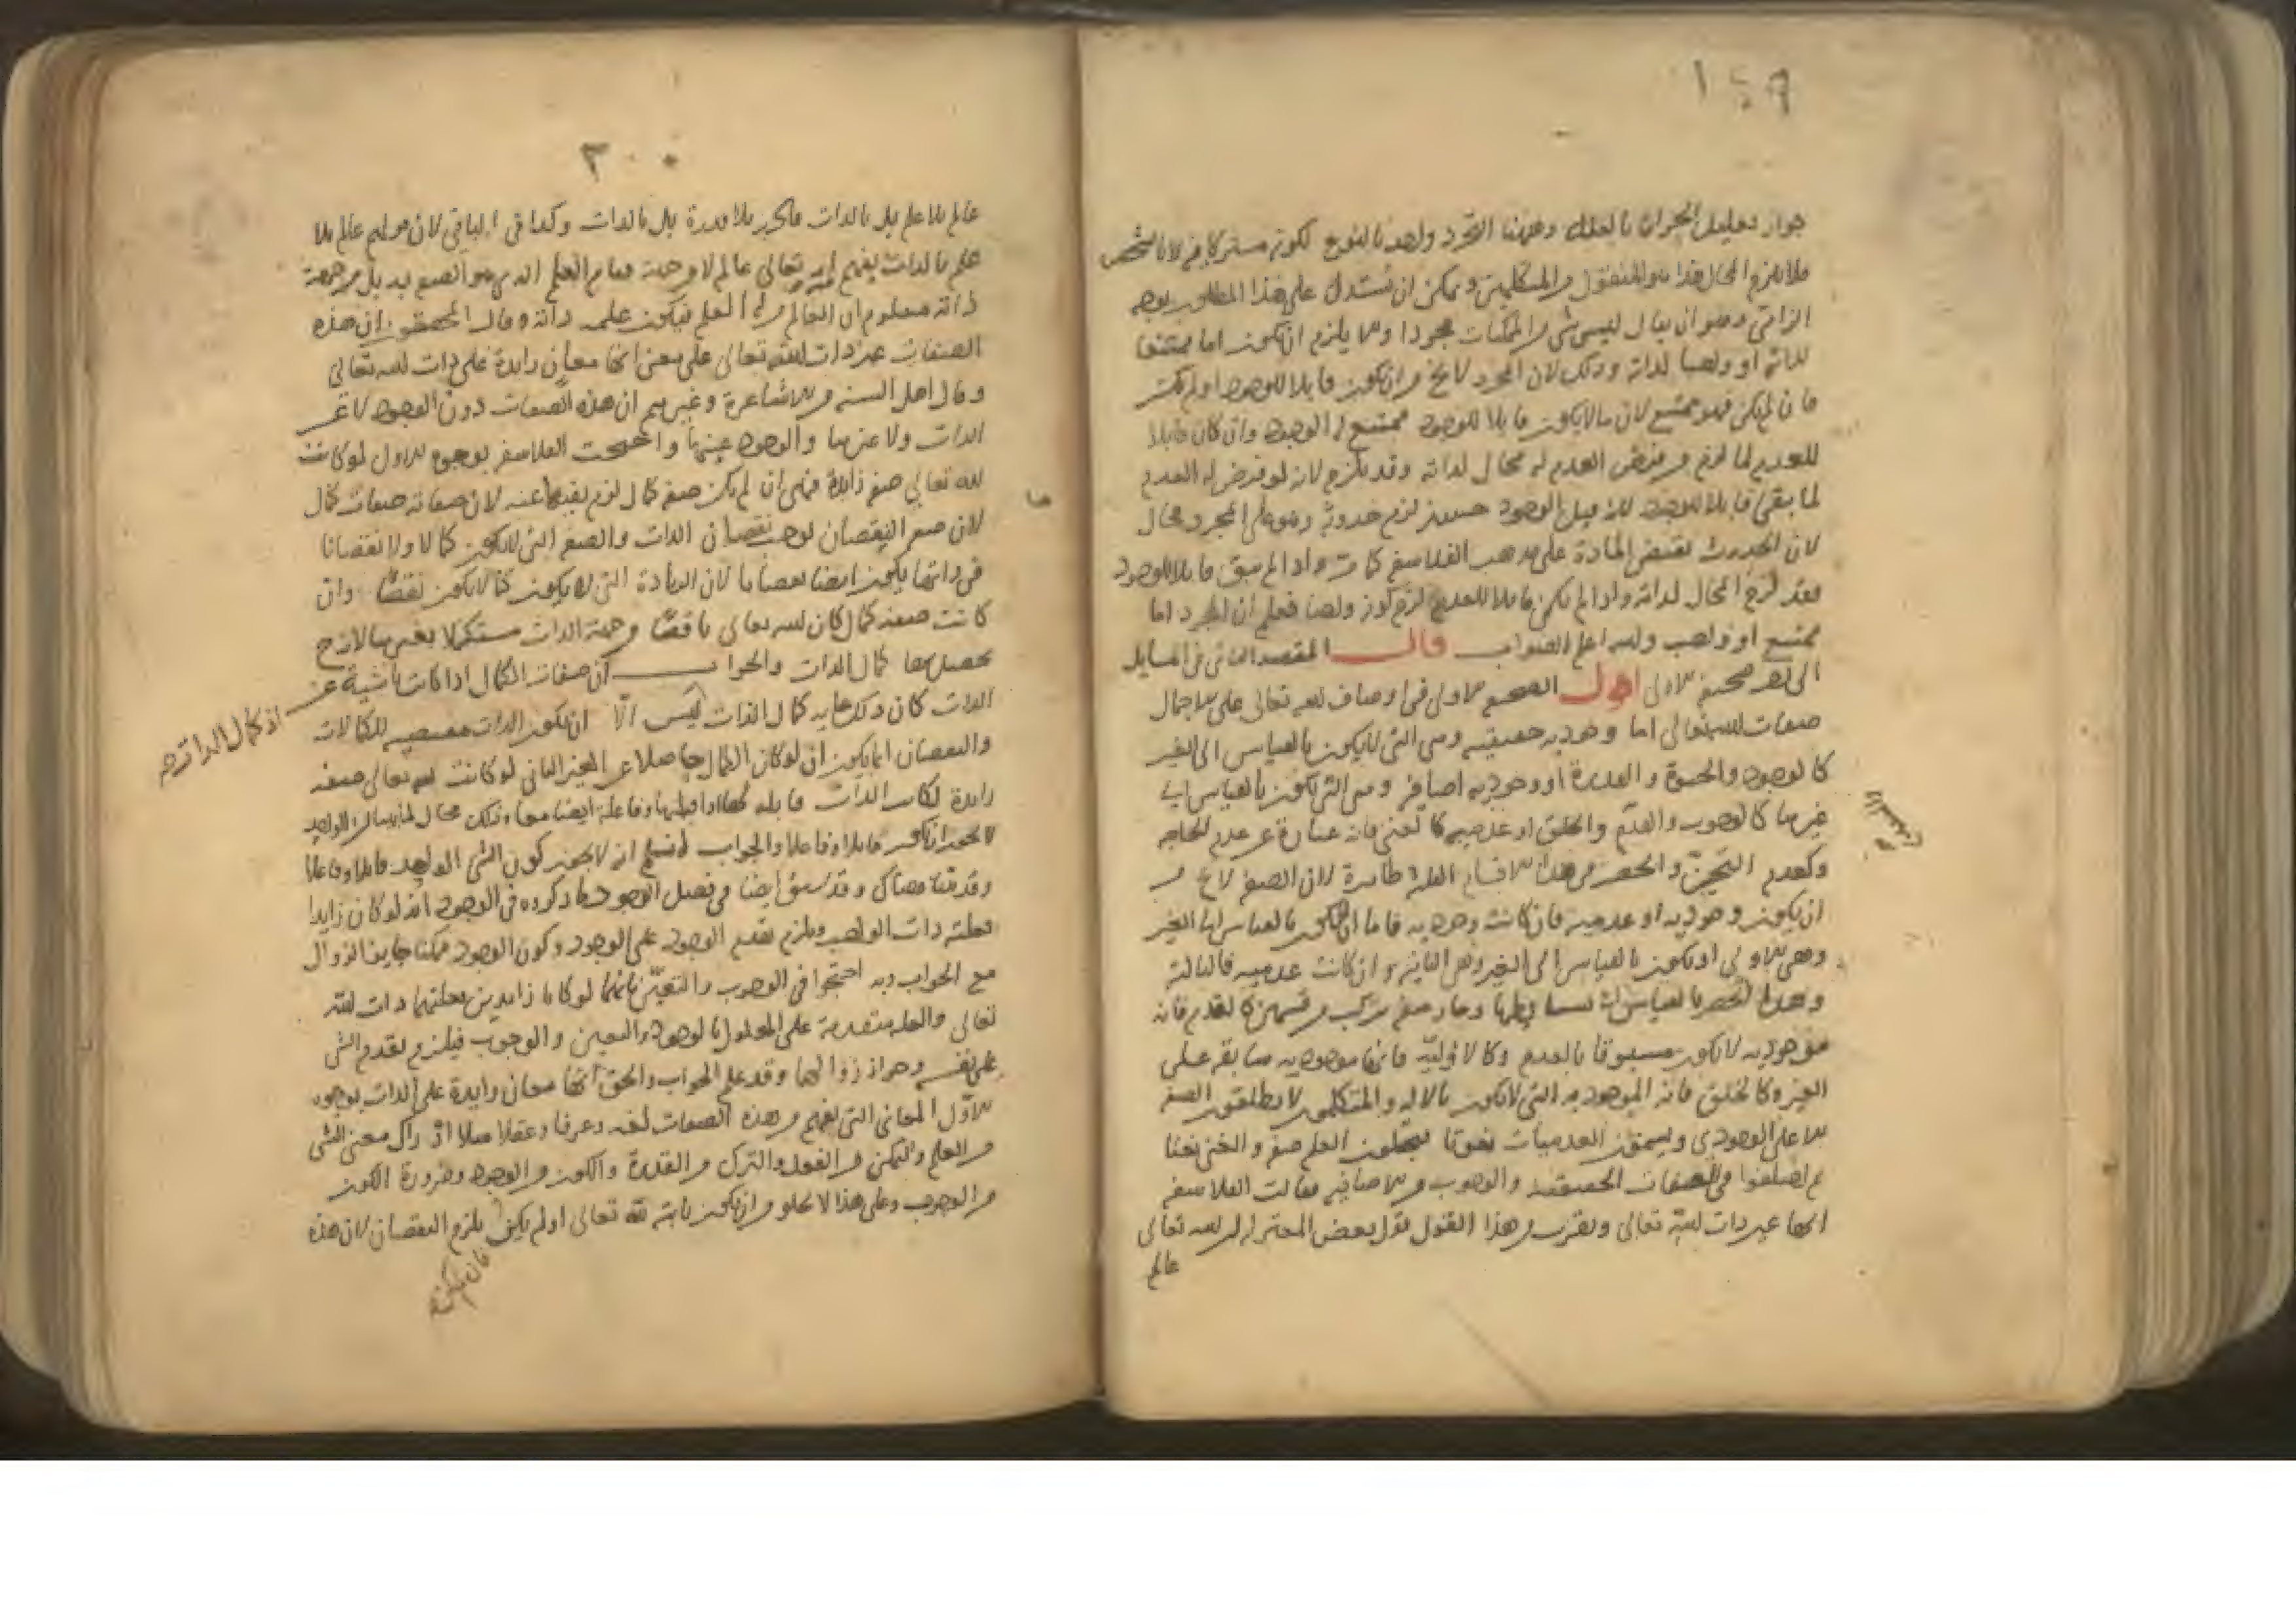 ١٩٩
جواز تعليل بالعلل وههنا التجرد واحد بالنوع لكونه مشتركا فيه لا بالشخص
فلا يلزم المحال هذا هو المنقول من المتكلمين ويمكن ان نستدل على هذا المطلوب بوجه
الزامي وهو ان يقال ليس شي من الممكنات مجردا والا يلزم ان يكون اما ممتنعا
لذاته او واجبا لذاته وذلك لان المجرد لا يخ من ان يكون قابلا للوجود او لم يكن
فان لم يكن فهو ممتنع لان ما لا يكون قابلا للوجود ممتنع له الوجود وان كان قابلا
للعدم لما لزم من فرض العدم له محال لذاته وقد يلزم لانه لو فرض له العدم
لما بقي قابلا للوجود لان قبل الوجود حينئذ لزم حدوثه وهو على المجرد محال
لان الحدوث يقتضي المادة على مذهب الفلاسفة كما مر واذا لم يبق قابلا للوجود
فقد لزم المحال لذاته واذا لم يكن قابلا للعدم لزم كونه واجبا فعلم ان المجرد اما
ممتنع او واجب والله اعلم بالصواب قال المقصد الثاني في المسايل
الاولى اقول الصحيفة الاولى في اوصاف الله تعالى على الاجمال
صفات الله تعالى اما وجودية حقيقية وهي التي لا يكون بالقياس الى الغير
كالوجود والحيوة والقدرة او وجودية اضافية وهي التي يكون بالقياس الى
غيرها كالوجوب والقدم والخلق او عدمية كالغنى فانه عبارة عن عدم الحاجة
وكعدم التحيز والحصر في هذه الاقسام الثلثة ظاهرة لان الصفة لا يخ من
ان يكون وجودية او عدمية فان كانت وجودية فاما ان لا يكون بالقياس الى الغير
وهي الاولى او يكون بالقياس الى الغير وهي الثانية وان كانت عدمية فالثالثة
وهذا الحصر بالقياس الى وجاز صفة تركب من قسمين كالقدم فانه
موجودية لا يكون مسبوقا بالعدم وكالاولية فانها موجودية سابقة على
الغير وكالخلق فانه الموجودية التي لا يكون بالالة والمتكلمون لا يطلقون الصفة
الا على الوجودي ويسمون العدميات نعوتا فيجعلون العلم صفة والغنى نعتا
ثم اختلفوا في الصفات الحقيقية والوجوب من الاضافية فقالت الفلاسفة
انها عين ذات الله تعالى ويقرب من هذا القول قول بعض المعتزلة ان الله تعالى
عالم
٢٠٠
عالم بلا علم بل بالذات قادر بلا قدرة بل بالذات وكذا في الباقي لان قولهم عالم بلا
علم بالذات يفهم انه تعالى عالم لا من جهة قيام العلم الذي هو الصفة به بل من جهة
ذاته ومعلوم ان العالم من له العلم فيكون علمه ذاته وقال المحققون ان هذه
الصفات غير ذات الله تعالى على معنى انها معان زايدة على ذات الله تعالى
وقال اهل السنة من الاشاعرة وغيرهم ان هذه الصفات دون الوجود لا غير
الذات ولا عينها والوجود عينها واحتجت الفلاسفة بوجوه الاول لو كانت
لله تعالى صفة زايدة فهي ان لم يكن صفة كمال لزم نفيها عنه لان صفاته صفات كمال
لان صفة النقصان توجب نقصان الذات والصفة التي لا يكون كمالا ولا نقصانا
في ذاتها يكون ايضا نقصانا لان الزيادة التي لا يكون كمالا يكون نقصا وان
كانت صفة كمال كان الله تعالى ناقصا من جهة الذات مستكملا بغيرها لان ح
يحصل بها كمال الذات والجواب ان صفات الكمال اذا كانت ناشية عن
الذات كان ذلك غاية كمال الذات ليس الا ان يكون الذات مقتضية للكمالات
اذ كمال الذات
والنقصان انما يكون ان لو كان الكمال حاصلا عن الغير الثاني لو كانت لله تعالى صفة
زايدة لكانت الذات قابلة لها وفاعلة ايضا معا وذلك محال الواحد
لا يجوز ان يكون قابلا وفاعلا والجواب لا نسلم انه لا يجوز كون الشي الواحد قابلا وفاعلا
وقد بينا هناك وقد سبق ايضا في فصل الوجود ما ذكروه في الوجود انه لو كان زايدا
فعلته ذات الواجب ويلزم تقدم الوجود على الوجود وكون الوجود ممكنا جايز الزوال
مع الجواب وبه احتجوا في الوجوب والتعين بانهما لو كانا زايدين فعلتهما ذات الله
تعالى والعلة متقدمة على المعلول بالوجود والتعين والوجوب فيلزم تقدم الشي
على نفسه وجواز زوالهما وقد علم الجواب والحق انها معان زايدة على الذات بوجوه
الاول المعاني التي يفهم من هذه الصفات لغة وعرفا وعقلا مثلا ادراك معنى الشي
من العلم والتمكن من الفعل والترك من القدرة والكون من الوجود وضرورة الكون
من الوجوب وعلى هذا لا يخلو من ان يكون ثابتة لله تعالى او لم يكن يلزم النقصان لان هذه
فان لم يكن